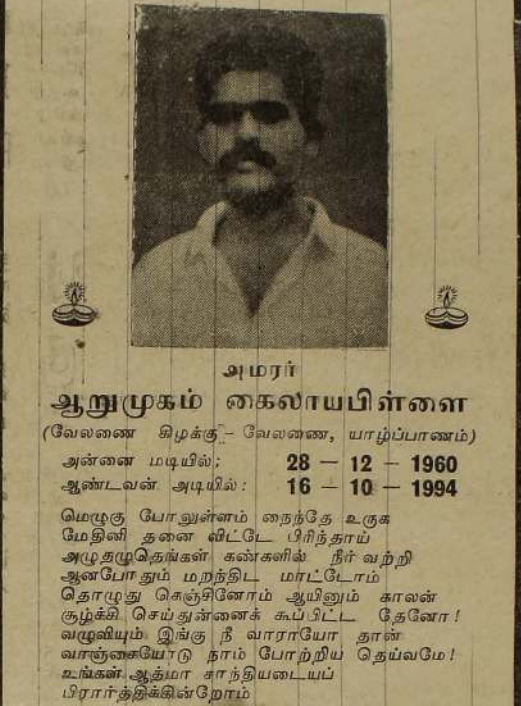 அமரர்
ஆறுமுகம் கைலாயபிள்ளை
(வேலணை கிழக்கு - வேலணை, யாழ்ப்பாணம்)
அன்னை மடியில்: 28 – 12 – 1960
ஆண்டவன் அடியில்: 16 – 10 – 1994
மெழுகு போலுள்ளம் நைந்தே உருக
மேதினி தனை விட்டே பிரிந்தாய்
அழுதழுதெங்கள் கண்களில் நீர் வற்றி
ஆனபோதும் மறந்திட மாட்டோம்
தொழுது கெஞ்சினோம் ஆயினும் காலன்
சூழ்க்கி செய்துன்னைக் கூப்பிட்ட தேனோ!
வழுவியும் இங்கு நீ வாராயோ தான்
வாஞ்கையோடு நாம் போற்றிய தெய்வமே!
உங்கள் ஆத்மா சாந்தியடையப்
பிரார்த்திக்கின்றோம்